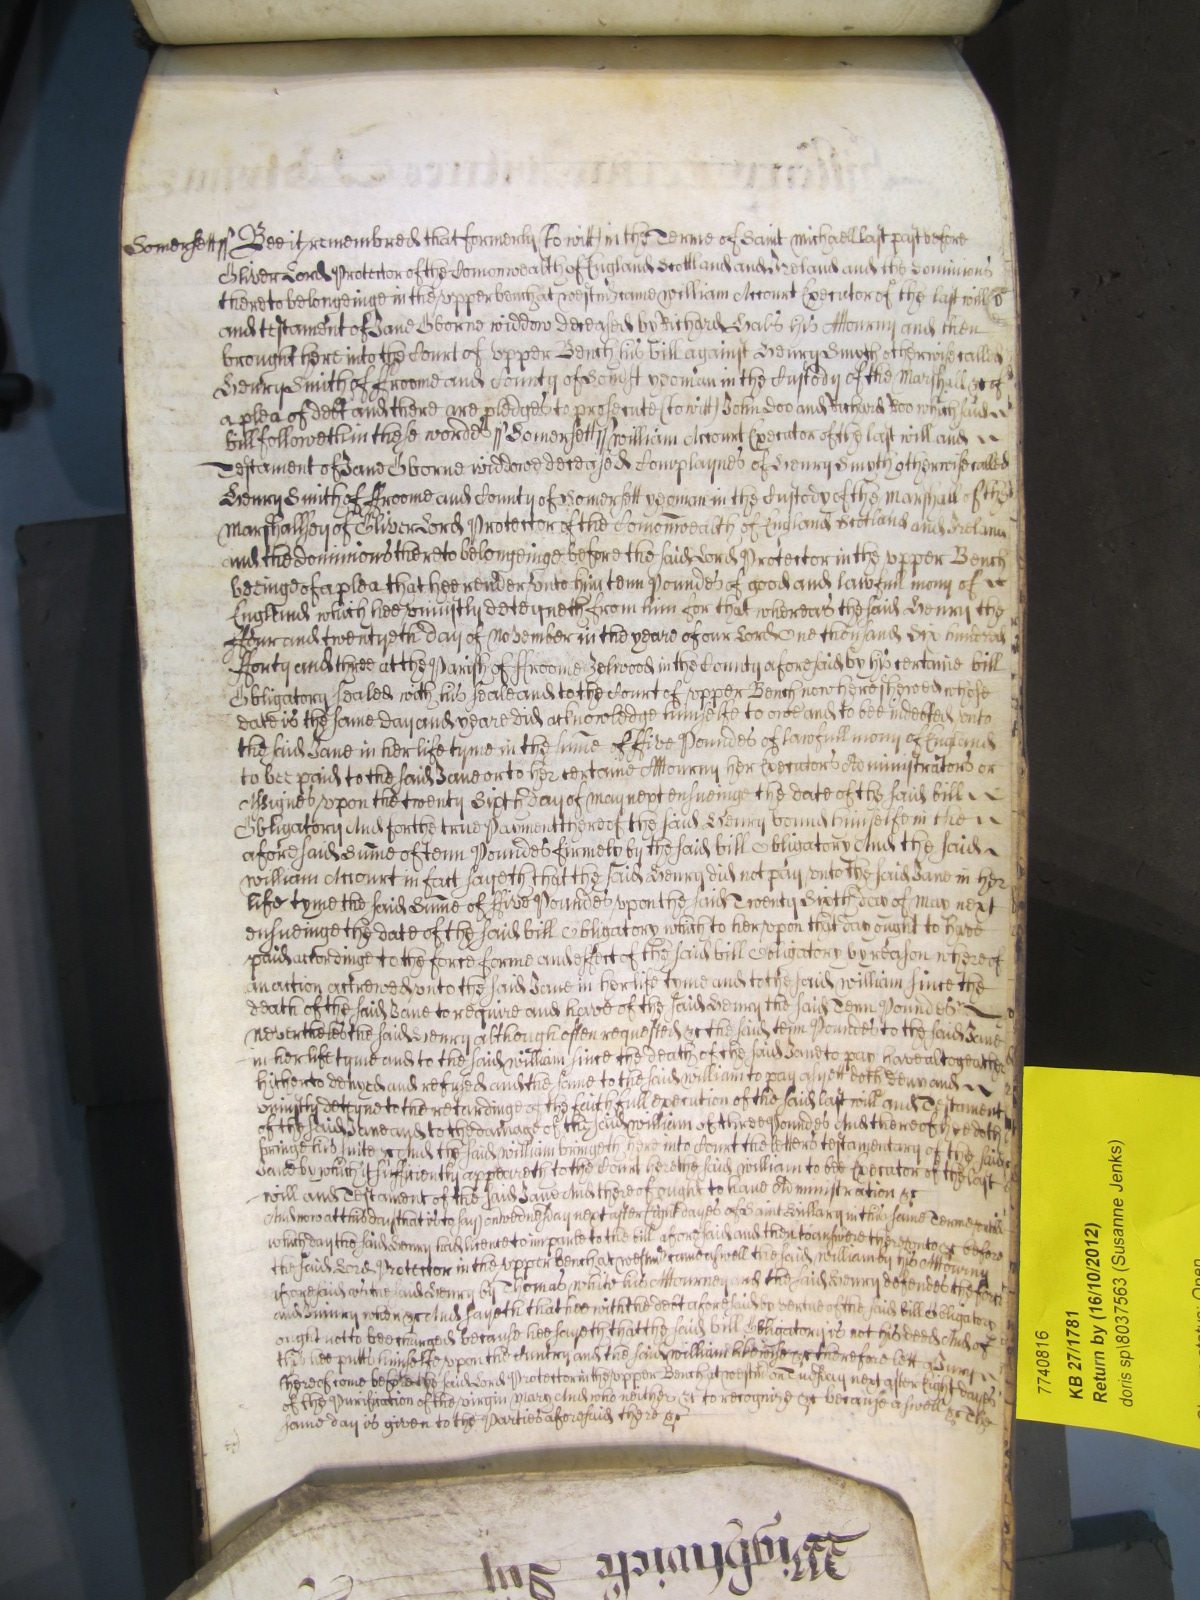 Somersett ss Bee it remembred that formerly (to witt) in the Terme of Saint Michaell last past before
Oliver Lord Protector of the Comonwealth of England Scotland and Ireland and the Dominions
thereto belongeinge in the upper bench at westm came William Accourt Executor of the last will
and testament of Jane Oborne widdow deceased by Richard his Attourny and then
brought here into the Court of upper Bench his bill against Henry Smyth otherwise called
Henry Smith of ffroome and County of Somst yeoman in the Custody of the Marshall &c of
a plea of debt and there are pledges to prosecute (to witt) John Doo and Richard Roo which said
bill followeth in these wordes ss Somersett ss William Accourt Executor of the last will and
Testament of Jane Oborne widdowe deceased Complaynes of Henry Smyth otherwise called
Henry Smith of ffroome and County of Somersett yeoman in the Custody of the Marshall of the
Marshallsey of Oliver Lord Protector of the Comonwealth of England Scotland and Ireland
and the dominions thereto belongeinge before the said Lord Protector in the upper Bench
beeinge of a plea that hee render unto him tenn Poundes of good and lawfull mony of
England which hee uniustly deteyneth from him for that whereas the said Henry the
ffour and twentyeth day of November in the yeare of our Lord One thousand Six hundred
fforty and three at the Parish of ffroome Zelwood in the County aforesaid by his certaine bill
Obligatory sealed with his seale and to the Court of upper Bench now here shewed whose
date is the same day and yeare did acknowledge himselfe to owe and to bee indebted unto
the said Jane in her life tyme in the sume of ffive Poundes of lawfull mony of England
to bee paid to the said Jane or to her certaine Attourny her Executors Administrators or
Assignes upon the twenty Sixth day of may next ensueinge the date of the said bill
Obligatory And for the true Payment thereof the said Henry bound himselfe in the
aforesaid Sume of tenn Poundes firmely by the said bill Obligatory And the said
William Accourt in fact sayeth that the said Henry did not pay unto the said Jane in her
life tyme the said Sume of ffive Poundes upon the said Twenty Sixth day of May next
ensueinge the date of the said bill Obligatory which to her upon that day ought to have
paid accordinge to the force forme and effect of the said bill Obligatory by reason whereof
an action accrewed unto the said Jane in her life tyme and to the said William since the
death of the said Jane to require and have of the said Henry the said Tenn Poundes
Neverthelesse the said Henry although often requested &c the said tenn Poundes to the said Jane
in her life tyme and to the said William since the death of the said Jane to pay have altogeather
hitherto denyed and refused and the same to the said William to pay as yett doth deny and
uniustly deteyne to the retardinge of the faithfull execution of the said last will and Testament
of the said Jane and to the damage of the said William of three Poundes And thereof hee doth
bringe his suite &c And the said William bringeth here into Court the letters testamentary of the said
Jane by which it sufficiently appeareth to the Court here the said William to bee Executor of the last
will and Testament of the said Jane And thereof ought to have Administration &c
And now at this day that is to say on wednesday next after Eight dayes of Saint Hillary in this same Terme untill
which day the said Henry had licence to imparle to the bill aforesaid and then to answere thereunto &c before
the said Lord Protector in the upper bench at westm came aswell the said William by his Attourny
aforesaid as the said Henry by Thomas White his Attourney and the said Henry defendes the force
and iniury when &c And sayeth that hee with the debt aforesaid by vertue of the said bill Obligatory
ought not to bee charged because hee sayeth that the said bill Obligatory is not his deed And of
this hee putts himselfe upon the Cuntry and the said William likewise &c therefore lett a Jury
thereof come before the said Lord Protector in the upper Bench at westm on Tuesday next after Eight dayes
of the Purification of the virgin Mary And who neither &c to recognize &c because aswell &c The
same day is given to the Parties aforesaid there &c
Wightwicke
7740816
KB 27/1781
Return by (16/10/2012)
doris sp\80375563 (Susanne Jenks)
Open